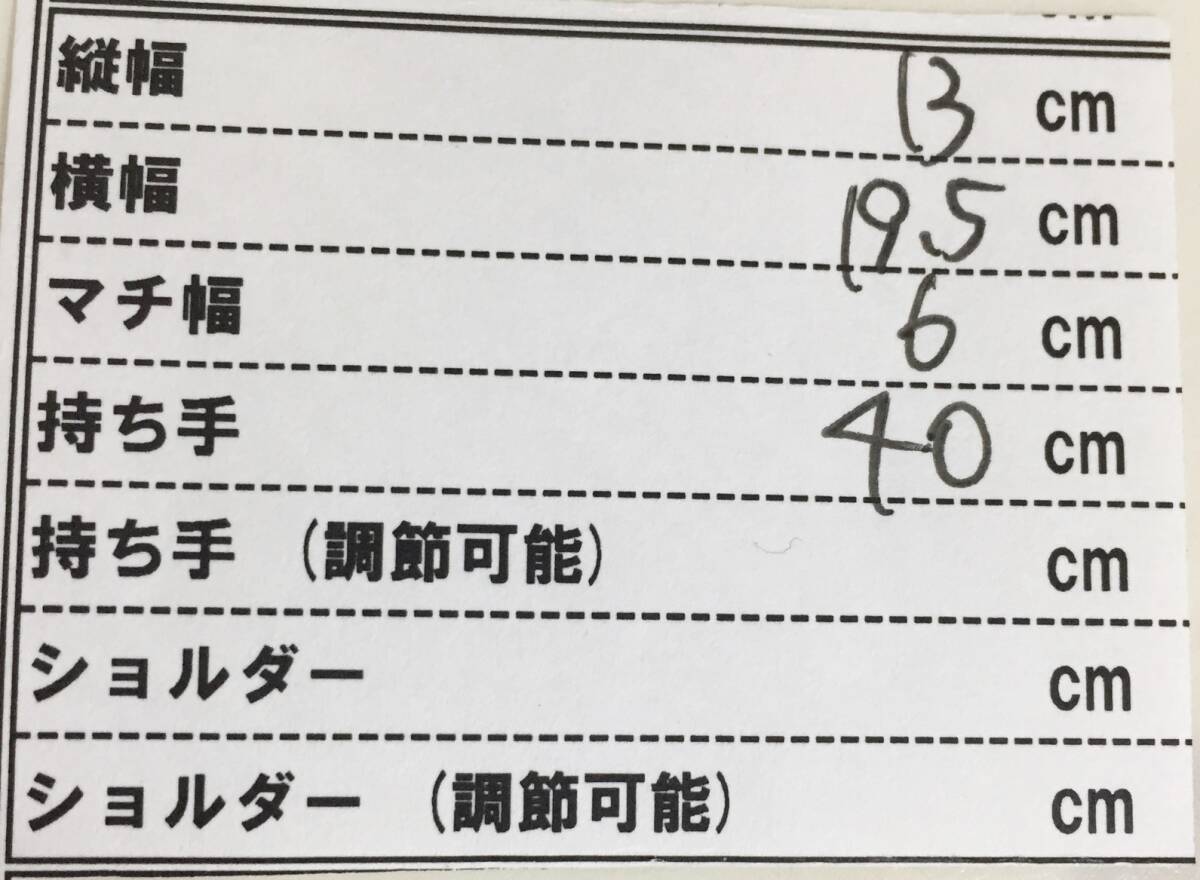 縦幅 13 cm
横幅 19.5 cm
マチ幅 6 cm
持ち手 40 cm
持ち手 (調節可能) cm
ショルダー cm
ショルダー (調節可能) cm